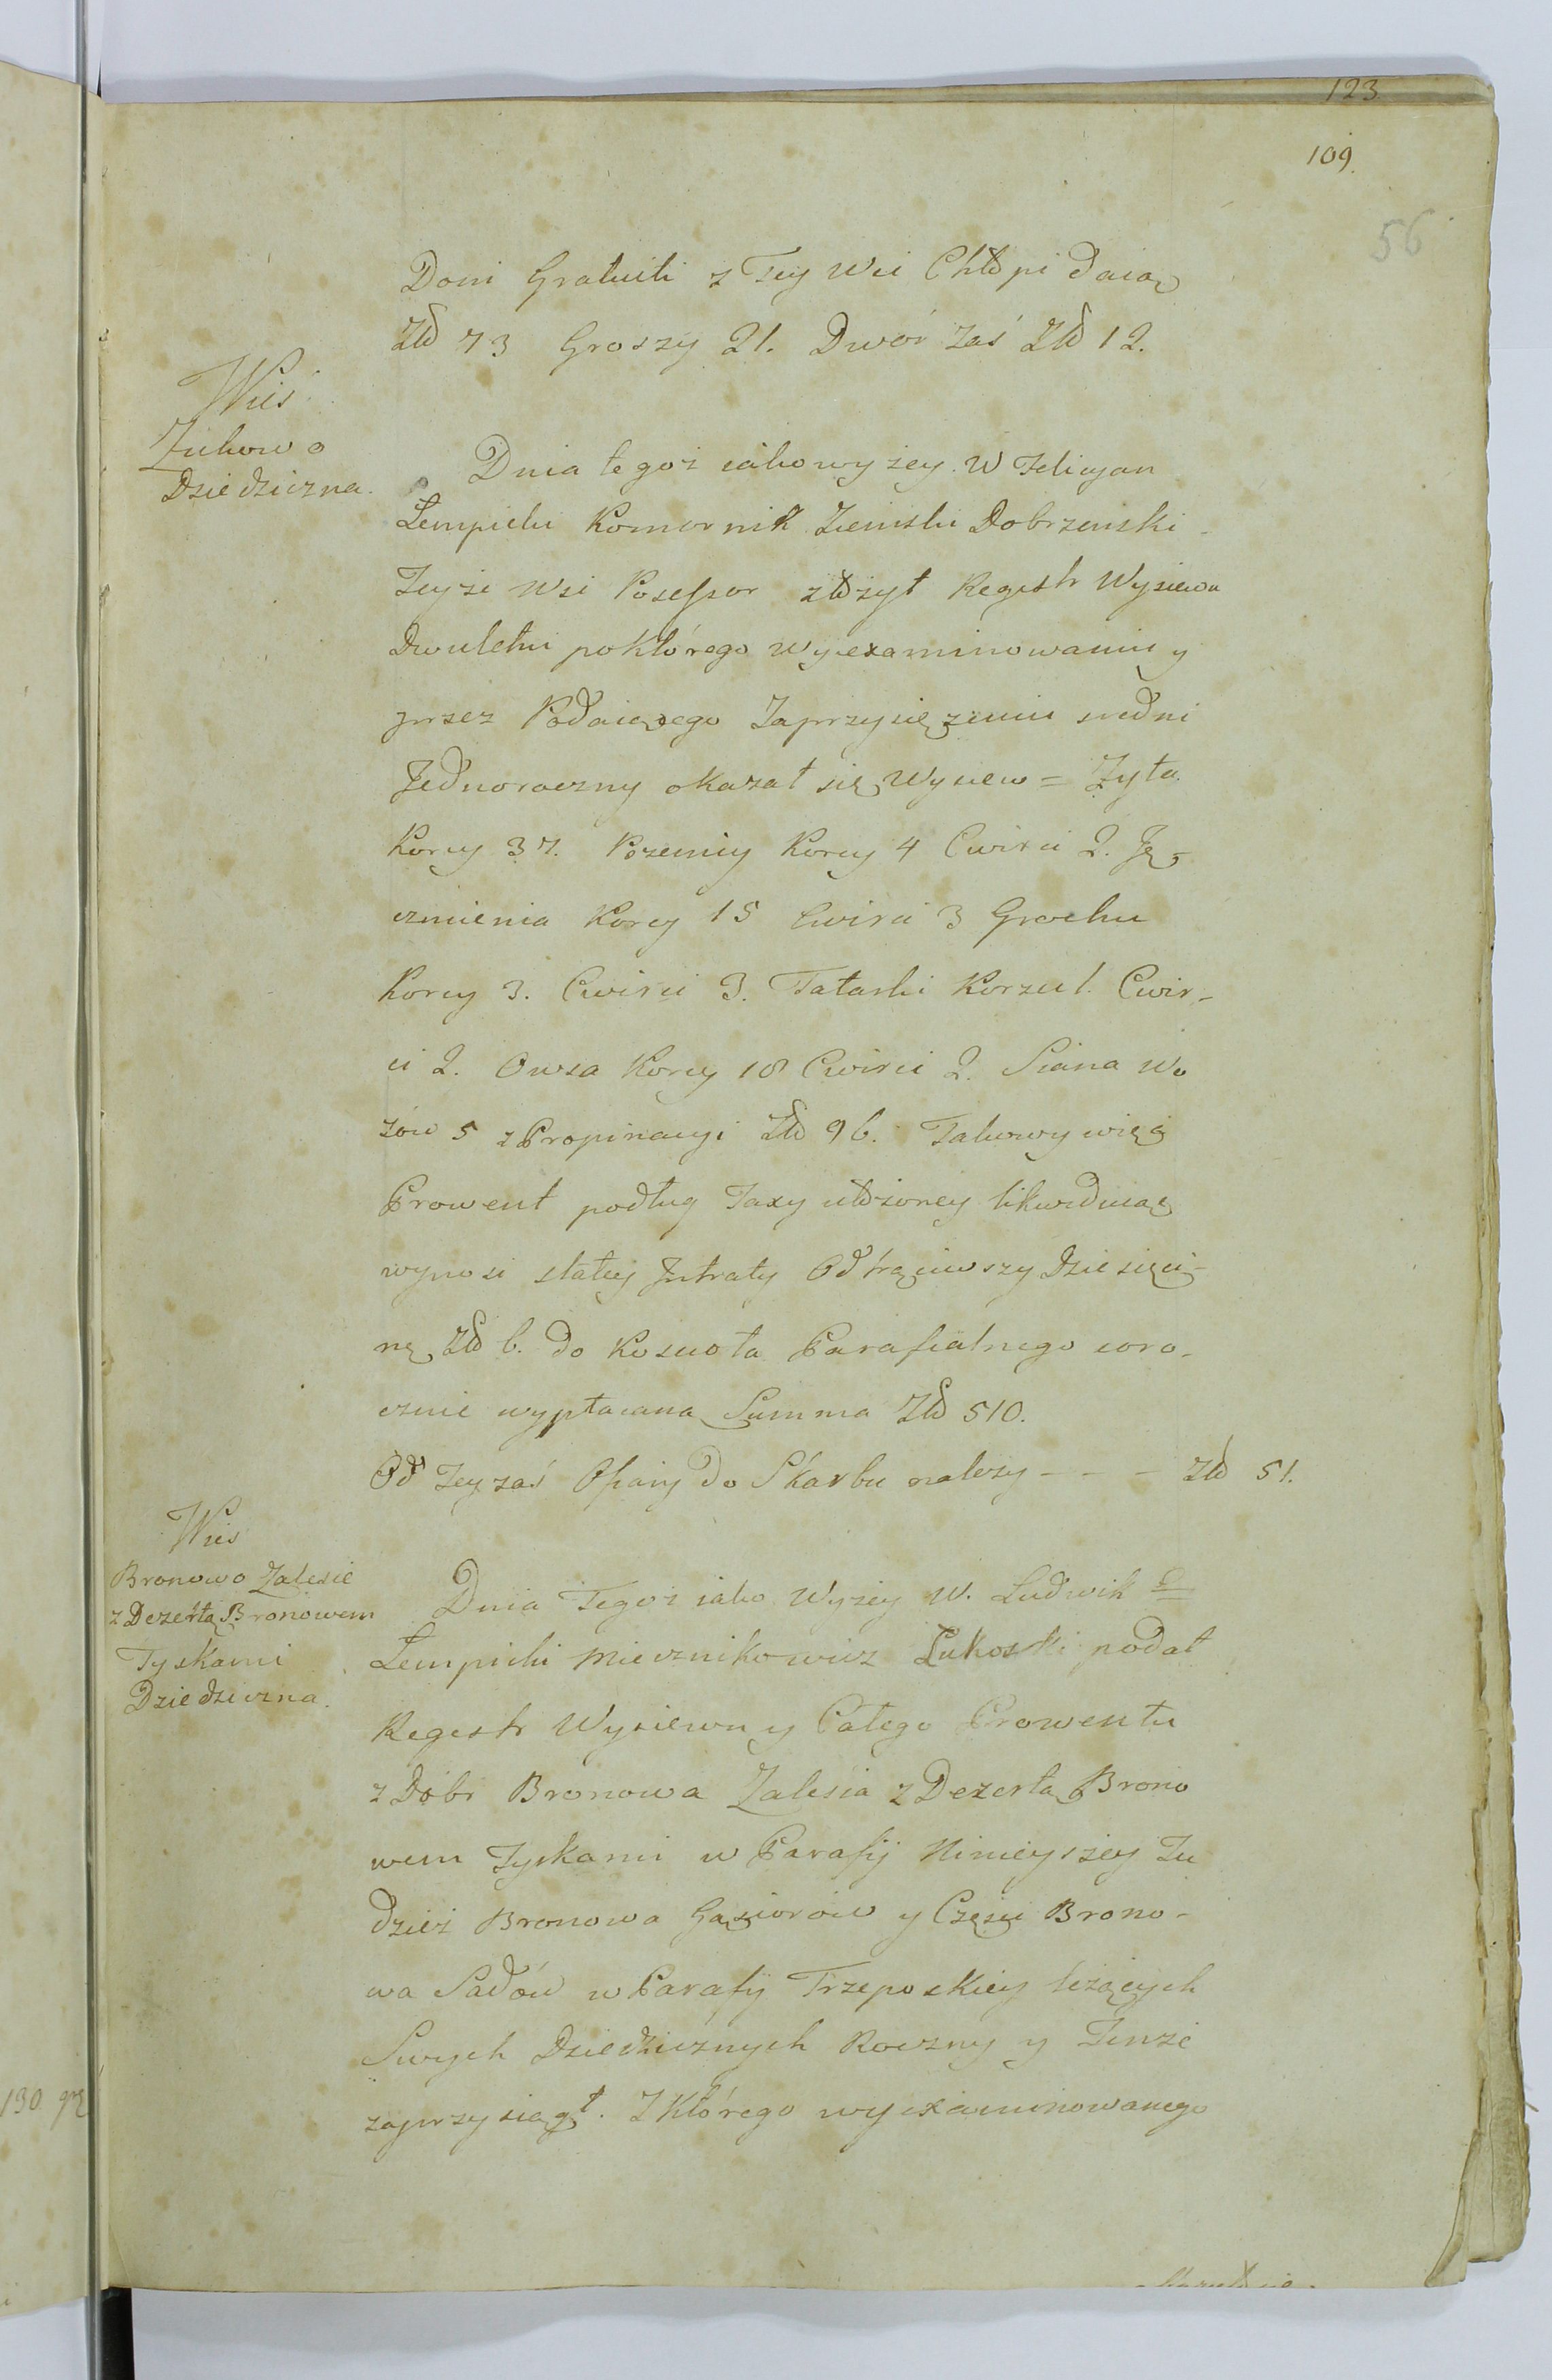 123
109.
56
Doni Gratuiti z Tey Wsi Chłopi daią
Zło 73 Groszy 21. Dwór zaś Zło 12.
Wieś
Zukowo
Dziedziczna.
Dnia tegoż iako wyżey. W Felicyan
Łempicki Komornik Ziemski Dobrzenski
Teyże Wsi Possessor złożył Regestr Wysiewu
Dwuletni po którego wyexaminowaniu y
przez Podaiącego Zaprzysiężeniu sredni
Jednoroczny okazał się Wysiew = Zyta
Korcy 37. Pszenicy Korcy 4 Cwierci 2. Ję-
czmienia Korcy 15 Cwierci 3 Grochu
Korcy 3. Cwierci 3. Tatarki Korzec 1. Cwier-
ci 2. Owsa Korcy 18 Cwierci 2. Siana Wo
zów 5 z Propinacyi Zło 96. Takowy więc
Prowent podług Taxy ułożoney likwiduiąc
wynosi stałey Jntraty Odtrąciwszy Dziesięci-
nę Zło 6. do Koscioła Parafialnego coro-
cznie wypłacaną Summa Zło 510.
Od Tey zaś Ofiary do Skarbu należy - - - Zło 51.
Wieś
Bronowo Zalesie
z Dezertą Bronowem
Tyskami
Dziedziczna.
Dnia Tegoż iako Wyżey W. Ludwik
Łempicki Miecznikowicz Łukoski podał
Regestr Wysiewu y Całego Prowentu
z Dobr Bronowa Zalesia z Dezertą Brono
wem Tyskami w Parafij Ninieyszey Tu
dzież Bronowa Gąsiorów y Części Brono-
wa Sadów w Parafij Trzeposkiey leżących
Swych Dziedzicznych Roczny y Tenże
zaprzysiągł. Z Którego wyexaminowanego
130 gr